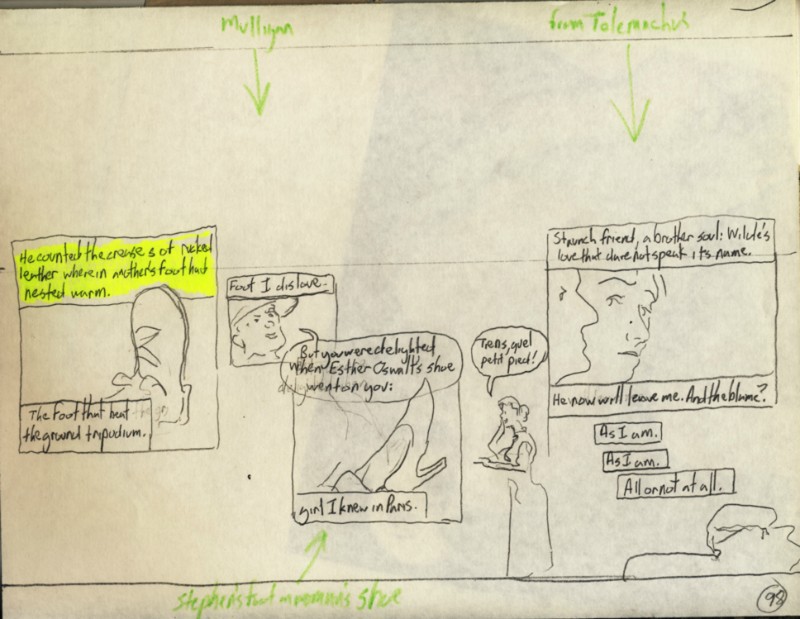 Mulligan
from Telemachus
He counted the creases of rucked
leather wherein another's foot had
nested warm.
The foot that beat
the ground tripudium.
Foot I dislove.
But you were delighted
when Esther Oswalt's shoe
went on you:
girl I knew in Paris.
Tiens, quel
petit pied!
Staunch friend, a brother soul: Wilde's
love that dare not speak its name.
He now will leave me. And the blame?
As I am.
As I am.
All or not at all.
Stephen's foot in woman's shoe
98